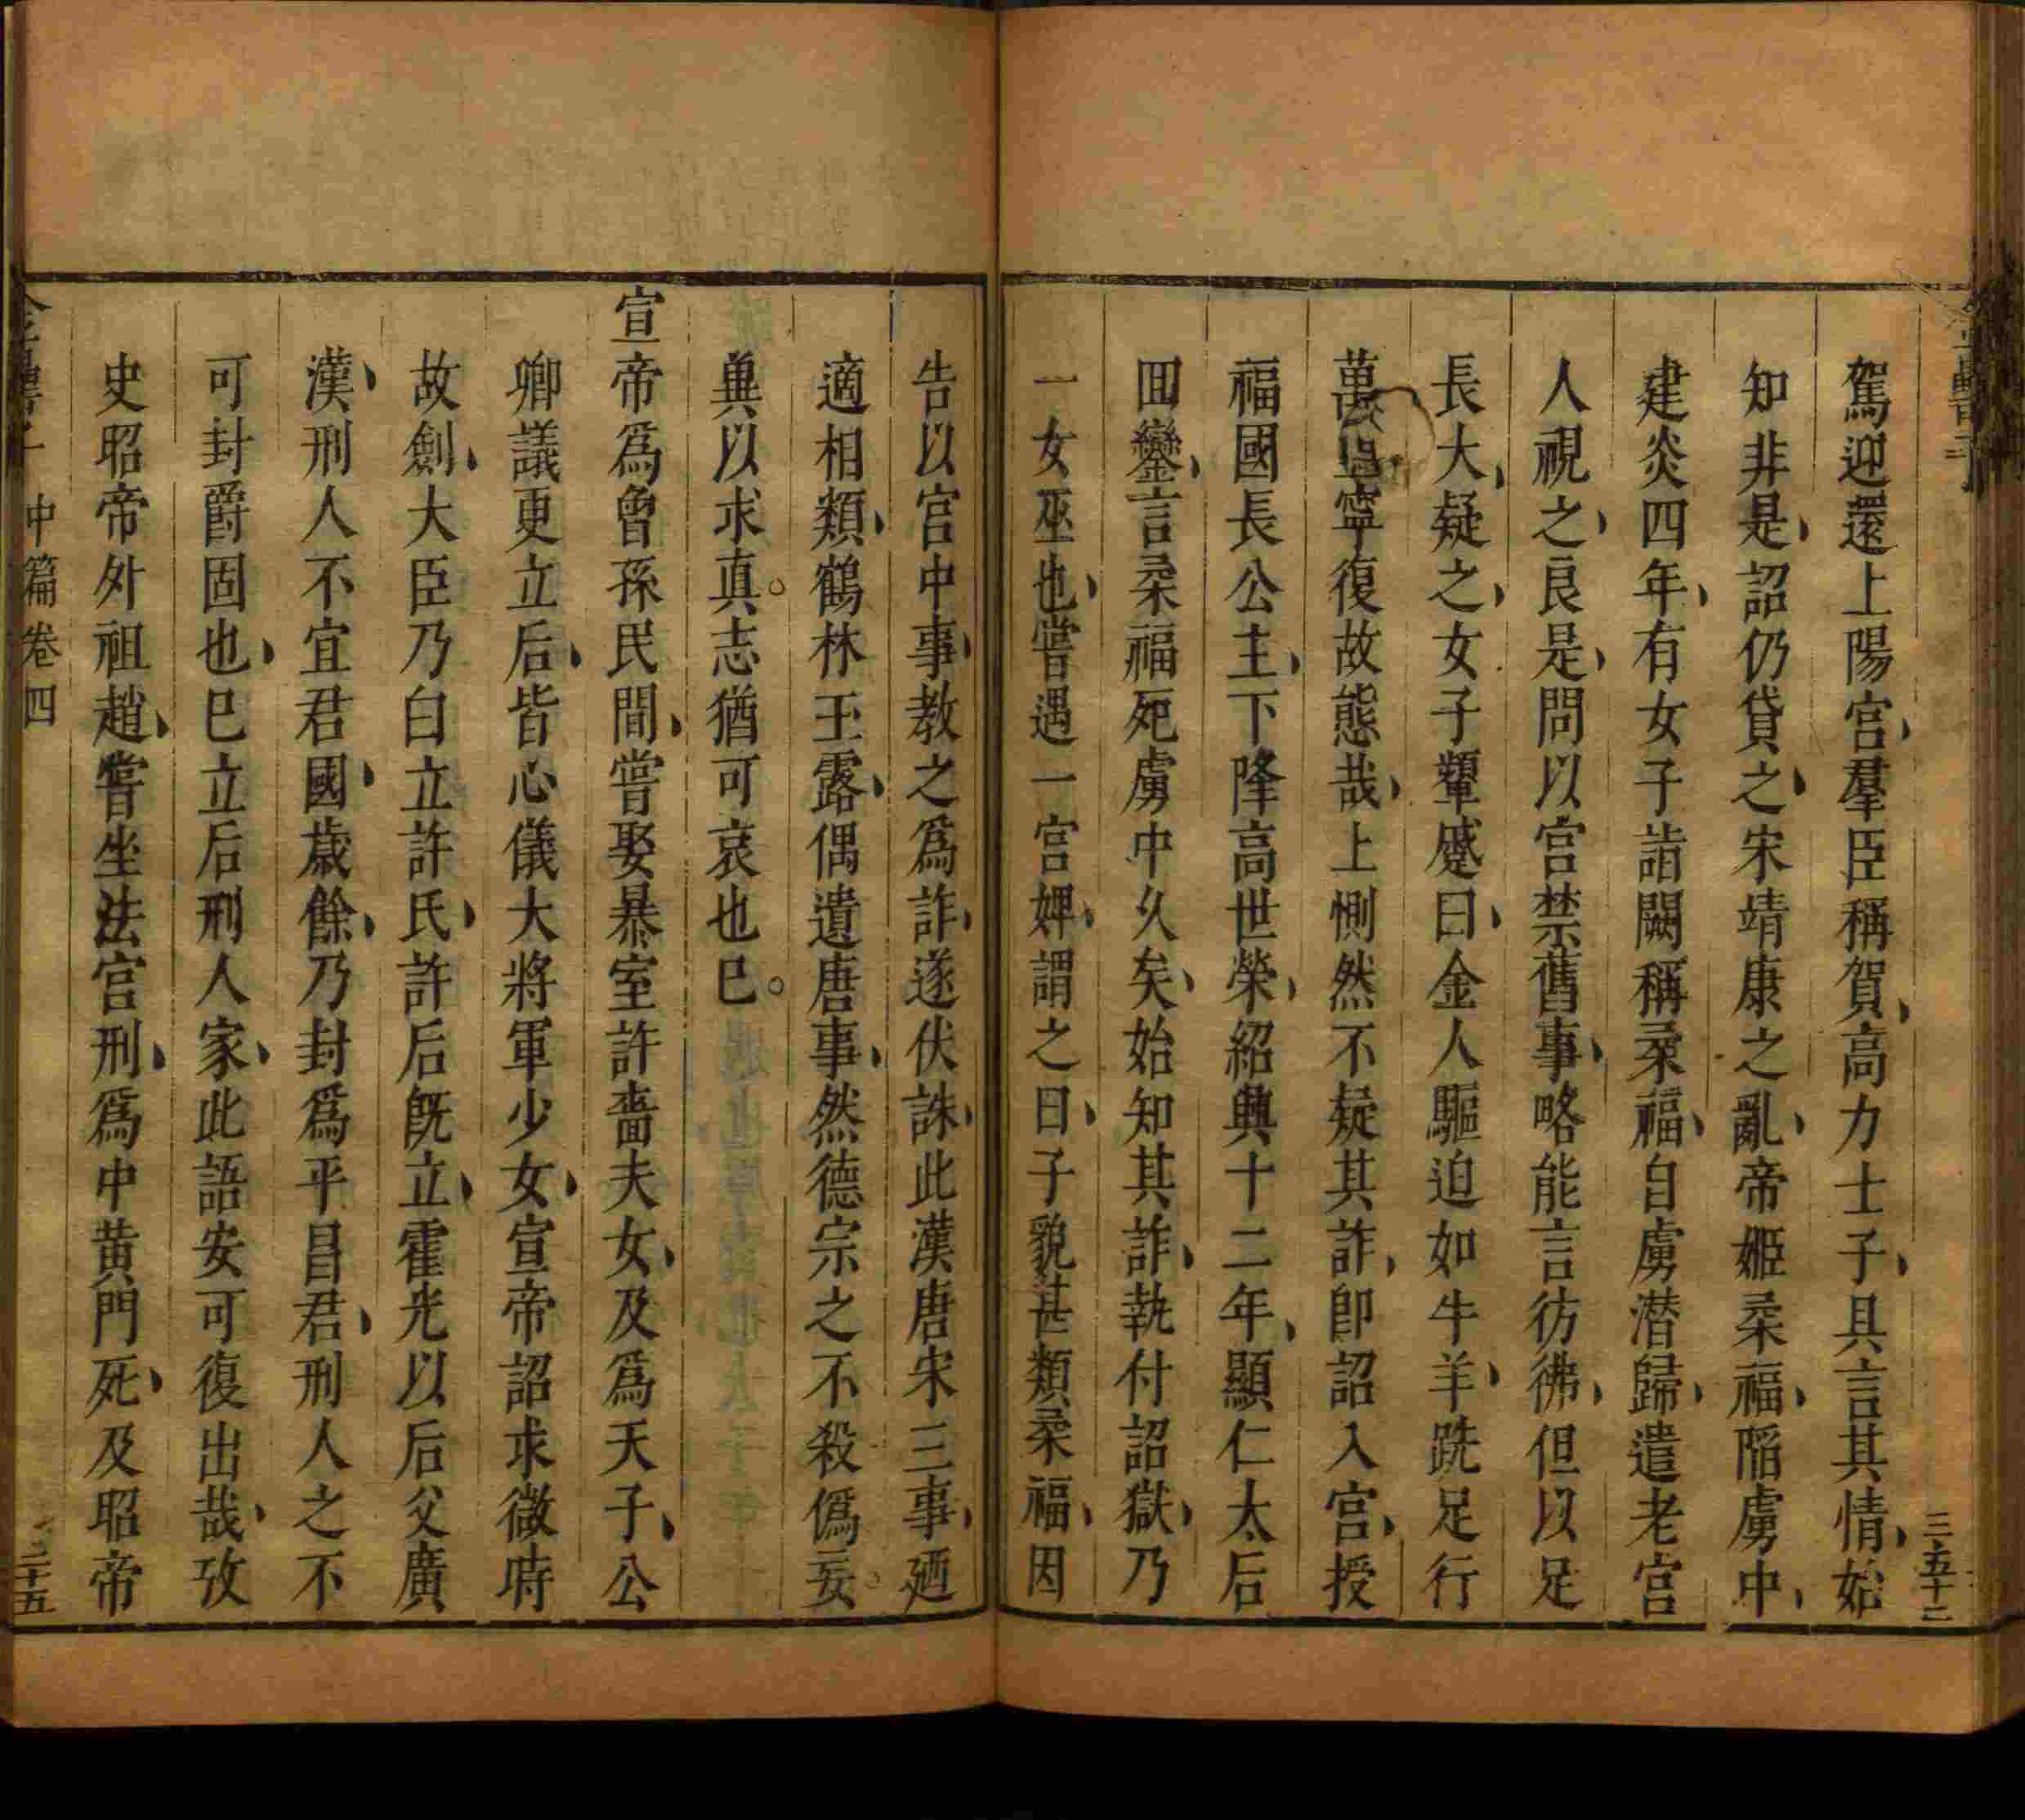 駕迎還上陽宮羣臣稱賀高力士子具言其情始
知非是詔仍貸之宋靖康之亂帝姬柔福陷虜中
建炎四年有女子詣闕稱柔福自虜潜歸遣老宮
人視之良是問以宮禁舊事略能言彷彿但以足
長大疑之女子顰蹙曰金人驅迫如牛羊跣足行
萬里寧復故態哉上惻然不疑其詐卽詔入宮授
福國長公主下降高世榮紹興十二年顯仁太后
回鑾言柔福死虜中久矣始知其詐執付詔獄乃
一女巫也嘗遇一宮婢謂之曰子貌甚類柔福因
告以宮中事教之爲詐遂伏誅此漢唐宋三事廼
適相類鶴林玉露偶遺唐事然德宗之不殺僞妄
兾以求真。志猶可哀也已。
宣帝爲曾孫民間嘗娶暴室許嗇夫女及爲天子公
卿議更立后皆心儀大將軍少女宣帝詔求微時
故劍大臣乃白立許氏許后旣立霍光以后父廣
漢刑人不宜君國歲餘乃封爲平昌君刑人之不
可封爵固也已立后刑人家此語安可復出哉攷
史昭帝外祖趙嘗坐法宮刑爲中黄門死及昭帝
中篇卷四
三十五